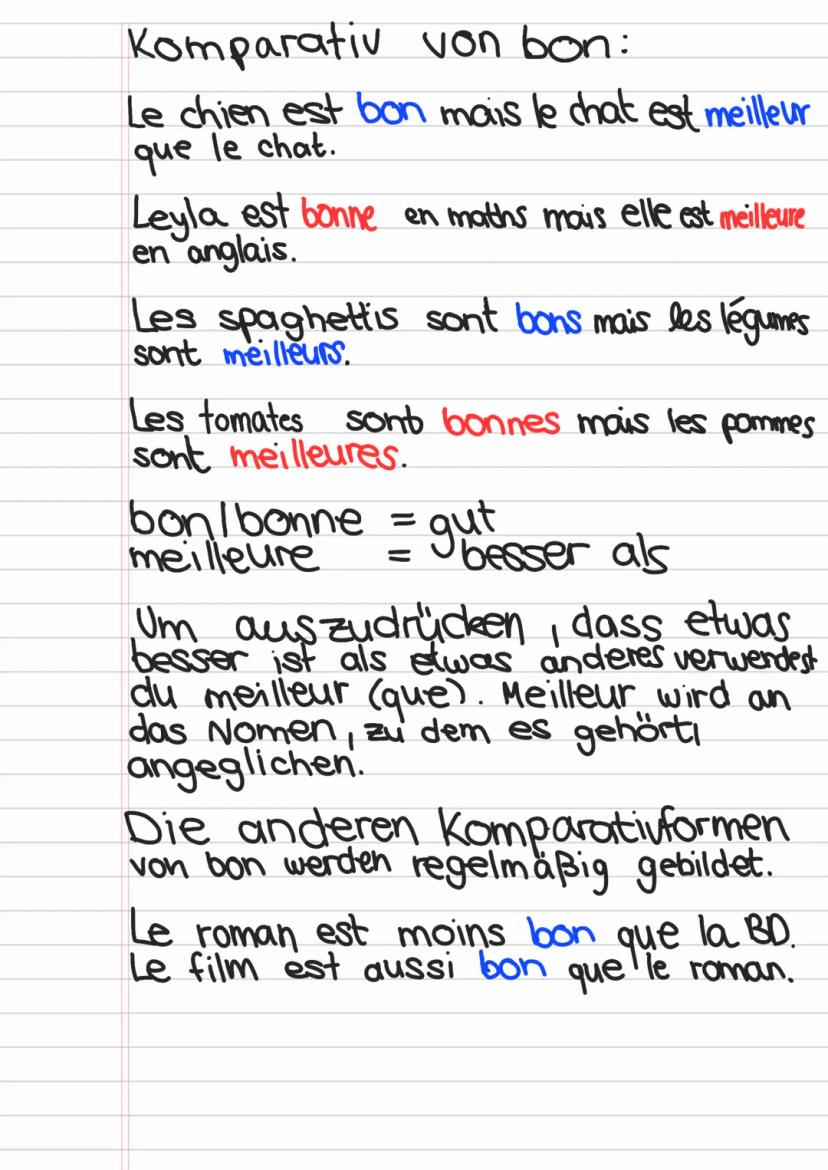 Komparativ von bon:
Le chien est bon mais le chat est meilleur
que le chat.
Leyla est bonne en maths mais elle est meilleure
en anglais.
Les spaghettis sont bons mais les légumes
sont meilleurs.
Les tomates sont bonnes mais les pommes
sont meilleures.
bon/bonne = gut
meilleure = besser als
Um auszudrücken, dass etwas
besser ist als etwas anderes verwendest
du meilleur (que). Meilleur wird an
das Nomen, zu dem es gehört,
angeglichen.
Die anderen Komparativformen
von bon werden regelmäßig gebildet.
Le roman est moins bon que la BD.
Le film est aussi bon que le roman.